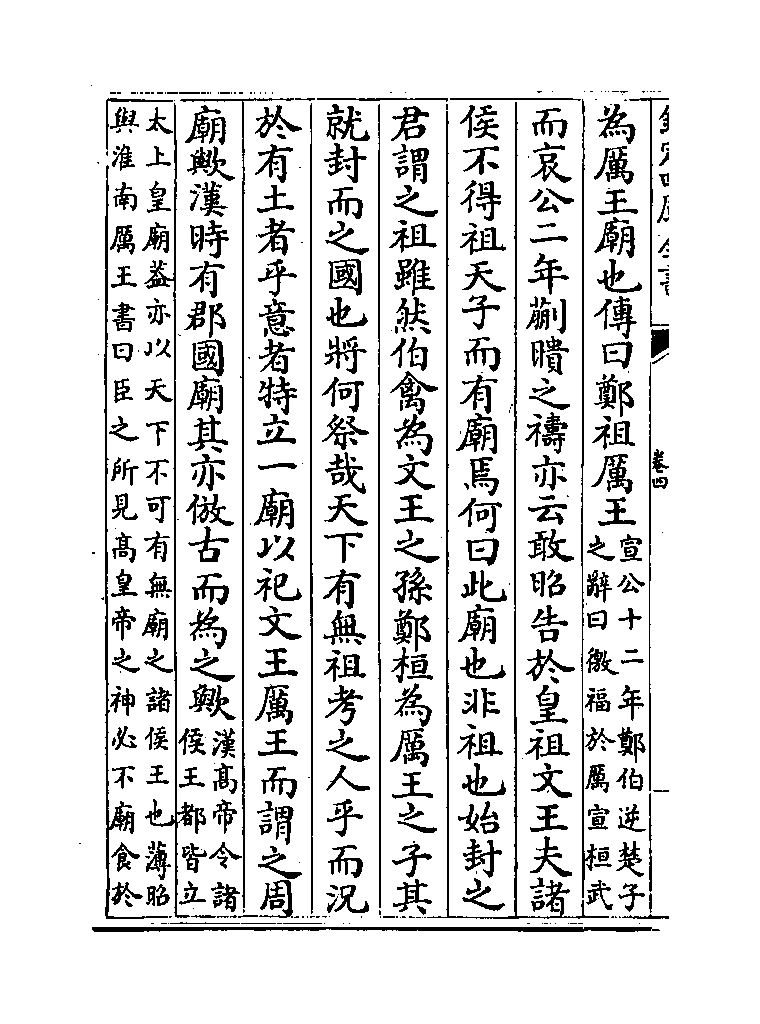 欽定四庫全書
卷四
為厲王廟也傳曰鄭祖厲王宣公十二年鄭伯逆楚子
之辭曰徼福於厲宣桓武
而哀公二年蒯聵之禱亦云敢昭告於皇祖文王夫諸
侯不得祖天子而有廟焉何曰此廟也非祖也始封之
君謂之祖雖然伯禽為文王之孫鄭桓為厲王之子其
就封而之國也將何祭哉天下有無祖考之人乎而況
於有土者乎意者特立一廟以祀文王厲王而謂之周
廟歟漢時有郡國廟其亦倣古而為之歟漢髙帝令諸
侯王都皆立
太上皇廟葢亦以天下不可有無廟之諸侯王也薄昭
與淮南厲王書曰臣之所見髙皇帝之神必不廟食於